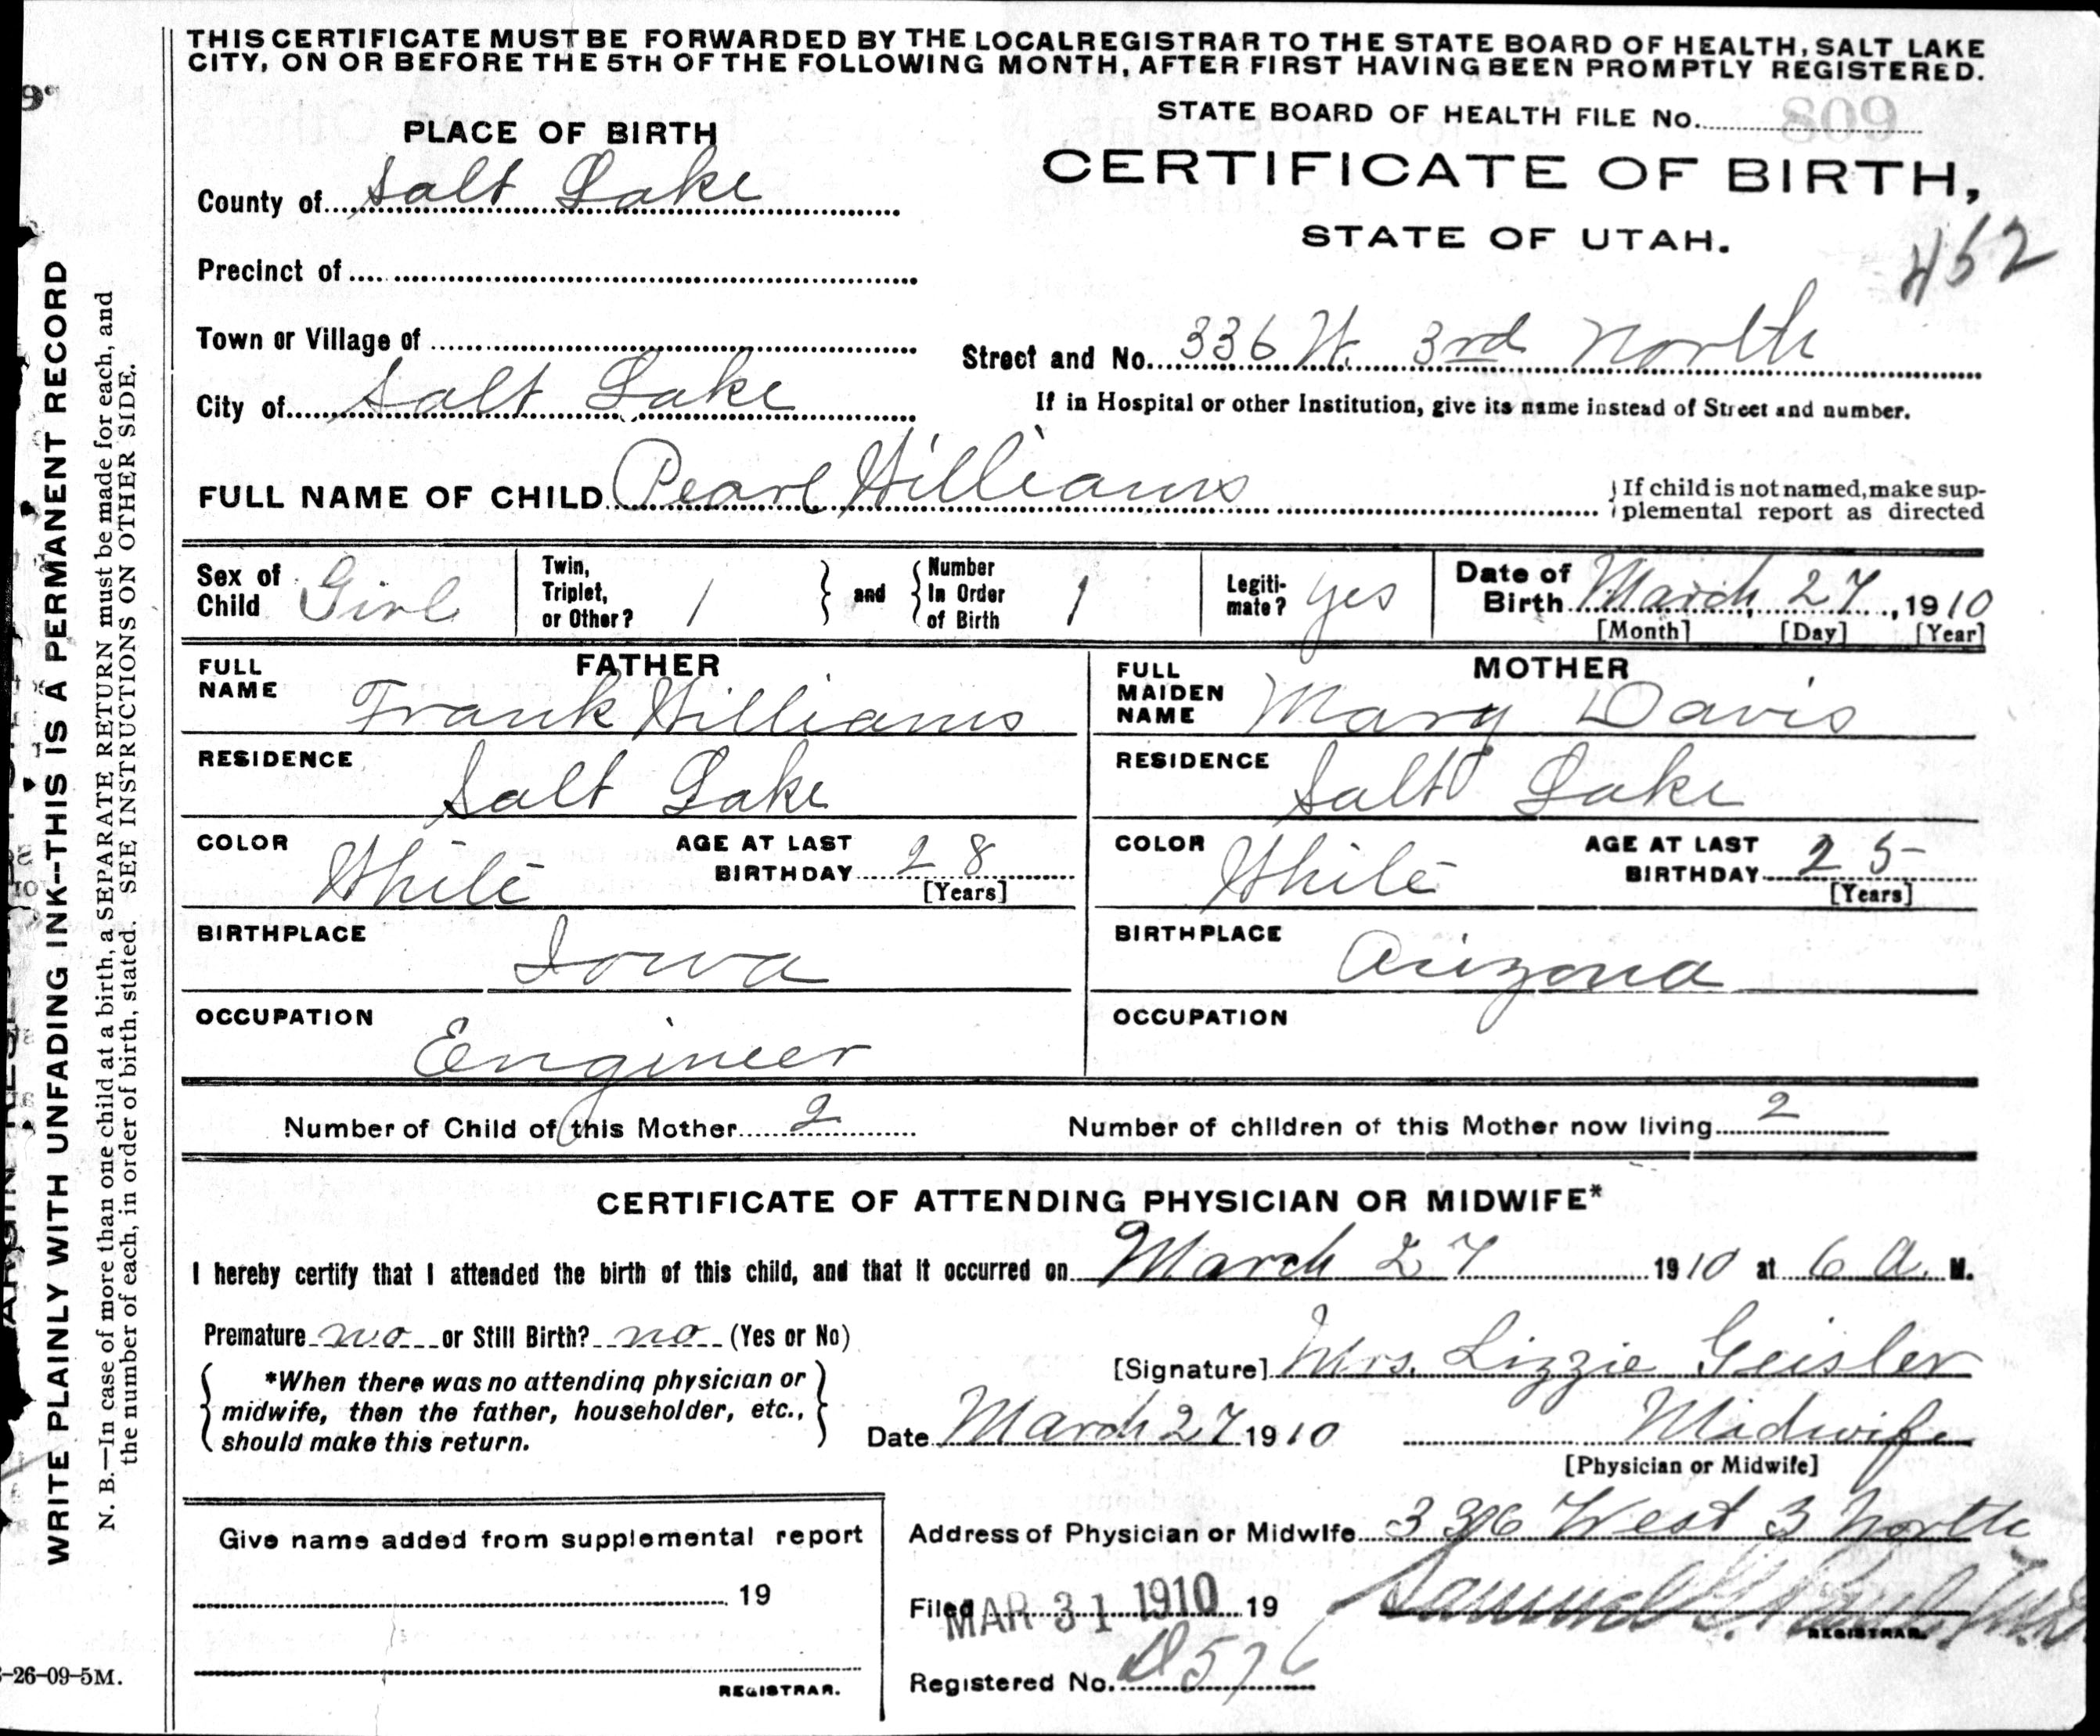 THIS CERTIFICATE MUST BE FORWARDED BY THE LOCAL REGISTRAR TO THE STATE BOARD OF HEALTH, SALT LAKE
CITY, ON OR BEFORE THE 5TH OF THE FOLLOWING MONTH, AFTER FIRST HAVING BEEN PROMPTLY REGISTERED.
STATE BOARD OF HEALTH FILE No. 809
PLACE OF BIRTH
CERTIFICATE OF BIRTH,
STATE OF UTAH.
462
County of Salt Lake
Precinct of
Town or Village of
Street and No. 336 W. 3rd North
City of Salt Lake
If in Hospital or other Institution, give its name instead of Street and number.
FULL NAME OF CHILD Pearl Williams
If child is not named, make sup-
plemental report as directed
Sex of Child Girl
Twin, Triplet, or Other? 1
and
Number In Order of Birth 1
Legiti-mate? Yes
Date of Birth March 27, 1910
[Month] [Day] [Year]
FATHER
FULL NAME Frank Williams
RESIDENCE Salt Lake
COLOR White
AGE AT LAST BIRTHDAY 28
[Years]
BIRTHPLACE Iowa
OCCUPATION Engineer
MOTHER
FULL MAIDEN NAME Mary Davis
RESIDENCE Salt Lake
COLOR White
AGE AT LAST BIRTHDAY 25
[Years]
BIRTHPLACE Arizona
OCCUPATION
Number of Child of this Mother 2
Number of children of this Mother now living 2
CERTIFICATE OF ATTENDING PHYSICIAN OR MIDWIFE*
I hereby certify that I attended the birth of this child, and that it occurred on March 27 1910 at 6 a. M.
Premature no or Still Birth? no (Yes or No)
*When there was no attending physician or
midwife, then the father, householder, etc.,
should make this return.
[Signature] Mrs. Lizzie Geisler
Date March 27 1910
Midwife
[Physician or Midwife]
Address of Physician or Midwife 336 West 3 North
Give name added from supplemental report
19
REGISTRAR.
Filed MAR 31 1910 19
Samuel G.
REGISTRAR.
Registered No. 576
WRITE PLAINLY WITH UNFADING INK--THIS IS A PERMANENT RECORD
N. B.—In case of more than one child at a birth, a SEPARATE RETURN must be made for each, and
the number of each, in order of birth, stated. SEE INSTRUCTIONS ON OTHER SIDE.
-26-09-5M.